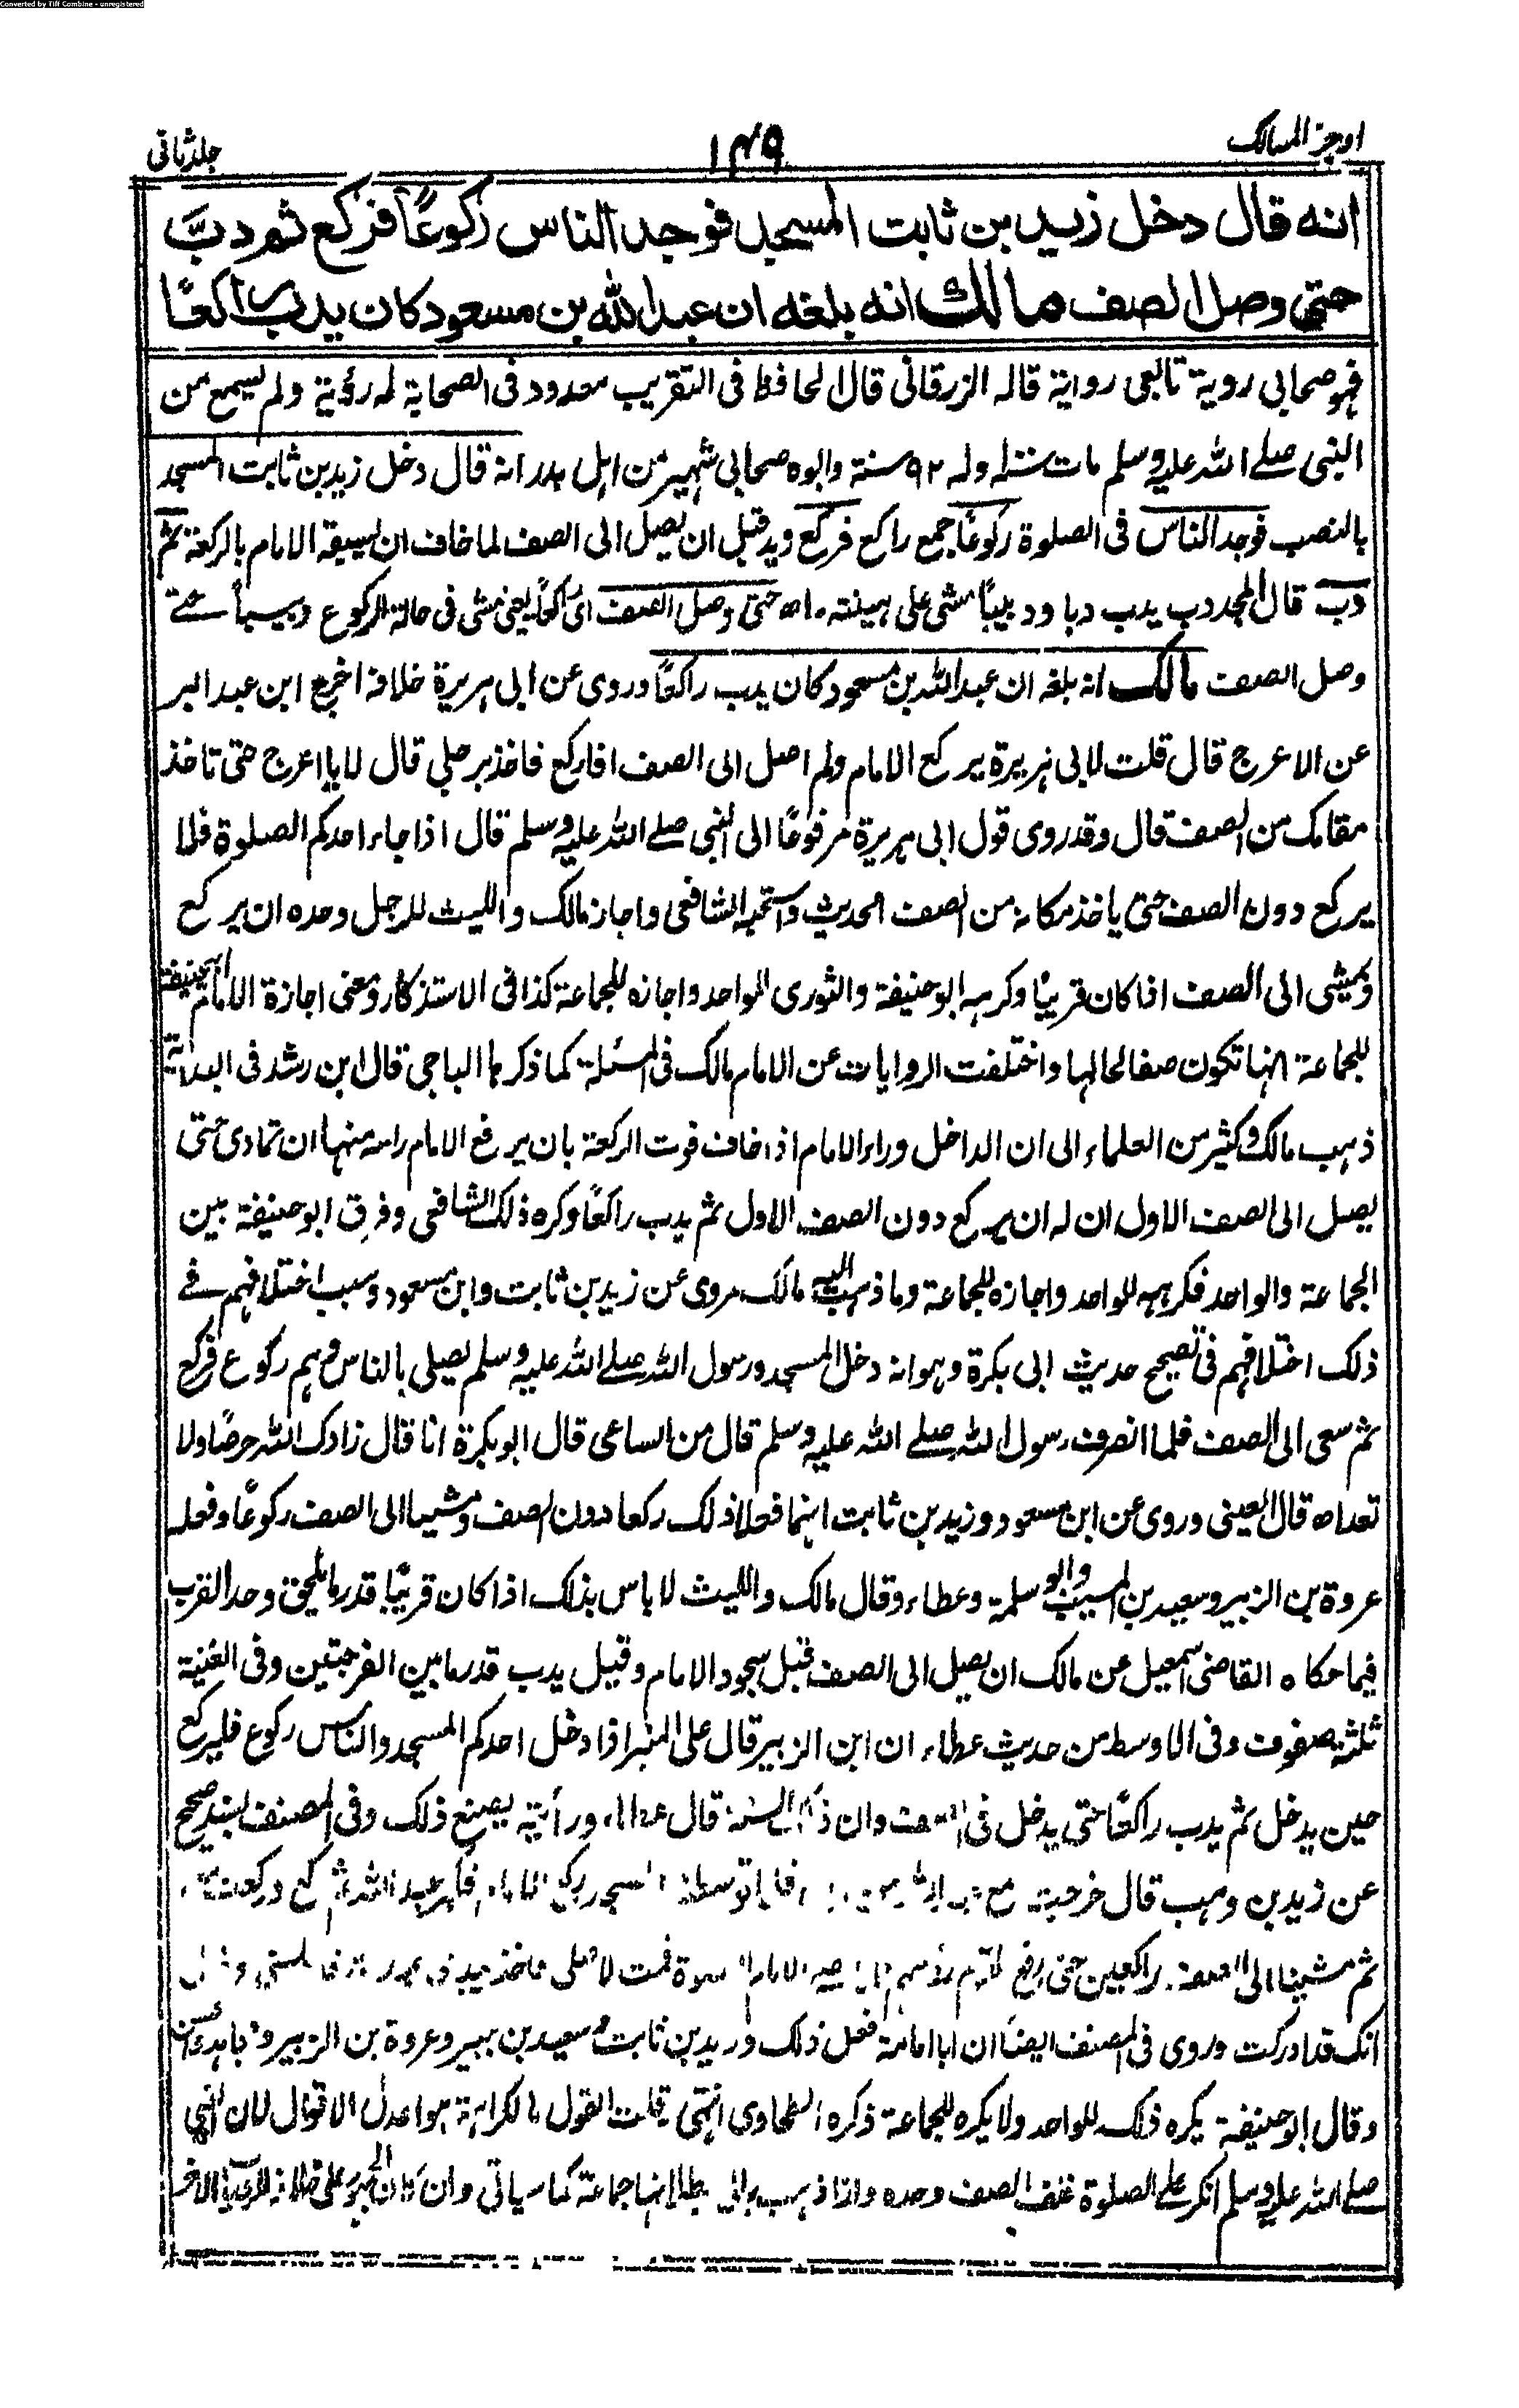 Converted by Tiff Combine - unregistered
اوجز المسالک
۱۴۹
جلد ثانی
انه قال دخل زيد بن ثابت المسجد فوجد الناس ركوعًا فركع ثم دبَّ
حتى وصل الصف مالك انه بلغه ان عبد الله بن مسعود كان يدب راكعًا
فهو صحابى روية تابعى رواية قاله الزرقانى قال الحافظ فى التقريب معدود فى الصحابة له رؤية ولم يسمع من
النبى صلے الله عليه وسلم مات سنة وله ۹۲ سنة وابوه صحابى شهير من اهل بدر انه قال دخل زيد بن ثابت المسجد
بالنصب فوجد الناس فى الصلوة ركوعًا جمع راكع فركع زيد قبل ان يصل الى الصف لما خاف ان يسبقه الامام بالركعة ثم
دب قال المجد دب يدب دبا ودبيبًا مشى على هينته اه حتى وصل الصف اى راكعًا يعنى مشى فى حالة الركوع دبيبا حتے
وصل الصف مالك انه بلغه ان عبد الله بن مسعود كان يدب راكعًا وروى عن ابى هريرة خلافه اخرج ابن عبد البر
عن الاعرج قال قلت لابى هريرة يركع الامام ولم اصل الى الصف افاركع فاخذ برجلى قال لا يا اعرج حتى تاخذ
مقامك من الصف قال وقد روى قول ابى هريرة مرفوعًا الى النبى صلے الله عليه وسلم قال اذا جاء احدكم الصلوة فلا
يركع دون الصف حتى ياخذ مكانه من الصف الحديث واستحبه الشافعى واجاز مالك والليث للرجل وحده ان يركع
ويمشى الى الصف اذا كان قريبًا وكرهه ابو حنيفة والثورى للواحد واجازه للجماعة كذا فى الاستذكار ومعنى اجازة الامام ابى حنيفة
للجماعة انها تكون صفا لحالها واختلفت الروايات عن الامام مالك فى المسئلة كما ذكرها الباجى قال ابن رشد فى البداية
ذهب مالك وكثير من العلماء الى ان الداخل وراء الامام اذا خاف فوت الركعة بان يرفع الامام راسه منها ان تمادى حتى
يصل الى الصف الاول ان له ان يركع دون الصف الاول ثم يدب راكعًا وكره ذلك الشافعى وفرق ابو حنيفة بين
الجماعة والواحد فكرهه للواحد واجازه للجماعة وما ذهب اليه مالك مروى عن زيد بن ثابت وابن مسعود وسبب اختلافهم فے
ذلك اختلافهم فى تصحيح حديث ابى بكرة وهو انه دخل المسجد ورسول الله صلے الله عليه وسلم يصلى بالناس وهم ركوع فركع
ثم سعى الى الصف فلما انصرف رسول الله صلے الله عليه وسلم قال من الساعى قال ابو بكرة انا قال زادك الله حرصًا ولا
تعد اه قال العينى وروى عن ابن مسعود وزيد بن ثابت انهما فعلا ذلك ركعا دون الصف ومشيا الى الصف ركوعًا وفعله
عروة بن الزبير وسعيد بن المسيب وابو سلمة وعطاء وقال مالك والليث لا باس بذلك اذا كان قريبًا قدر ما يلحق وحد القرب
فيما حكاه القاضى اسمعيل عن مالك ان يصل الى الصف قبل سجود الامام وقيل يدب قدر ما بين الفرجتين وفى العتبية
ثلثة صفوف وفى الاوسط من حديث عطاء ان ابن الزبير قال على المنبر اذا دخل احدكم المسجد والناس ركوع فليركع
حين يدخل ثم يدب راكعًا حتى يدخل فى الصف وان ذلك السنة قال عطاء ورأيته يصنع ذلك وفى المصنف بسند صحيح
عن زيد بن وهب قال خرجت مع المسجد ركع الامام فكبر عبد الله ثم ركع وركعت معه
ثم مشينا الى الصف راكعين حتى رفع القوم رؤسهم الامام الصلوة قمت لاصلى فاخذ بيدى
انك قد ادركت وروى فى المصنف ايضًا ان ابا امامة فعل ذلك وزيد بن ثابت وسعيد بن جبير وعروة بن الزبير ومجاهد والحسن
وقال ابو حنيفة يكره ذلك للواحد ولا يكره للجماعة ذكره الطحاوى انتهى قلت القول بالكراهة هو اعدل الاقوال لان النبى
صلے الله عليه وسلم انكر على الصلوة خلف الصف وحده واذا ذهب جماعة كما سياتى وان كان